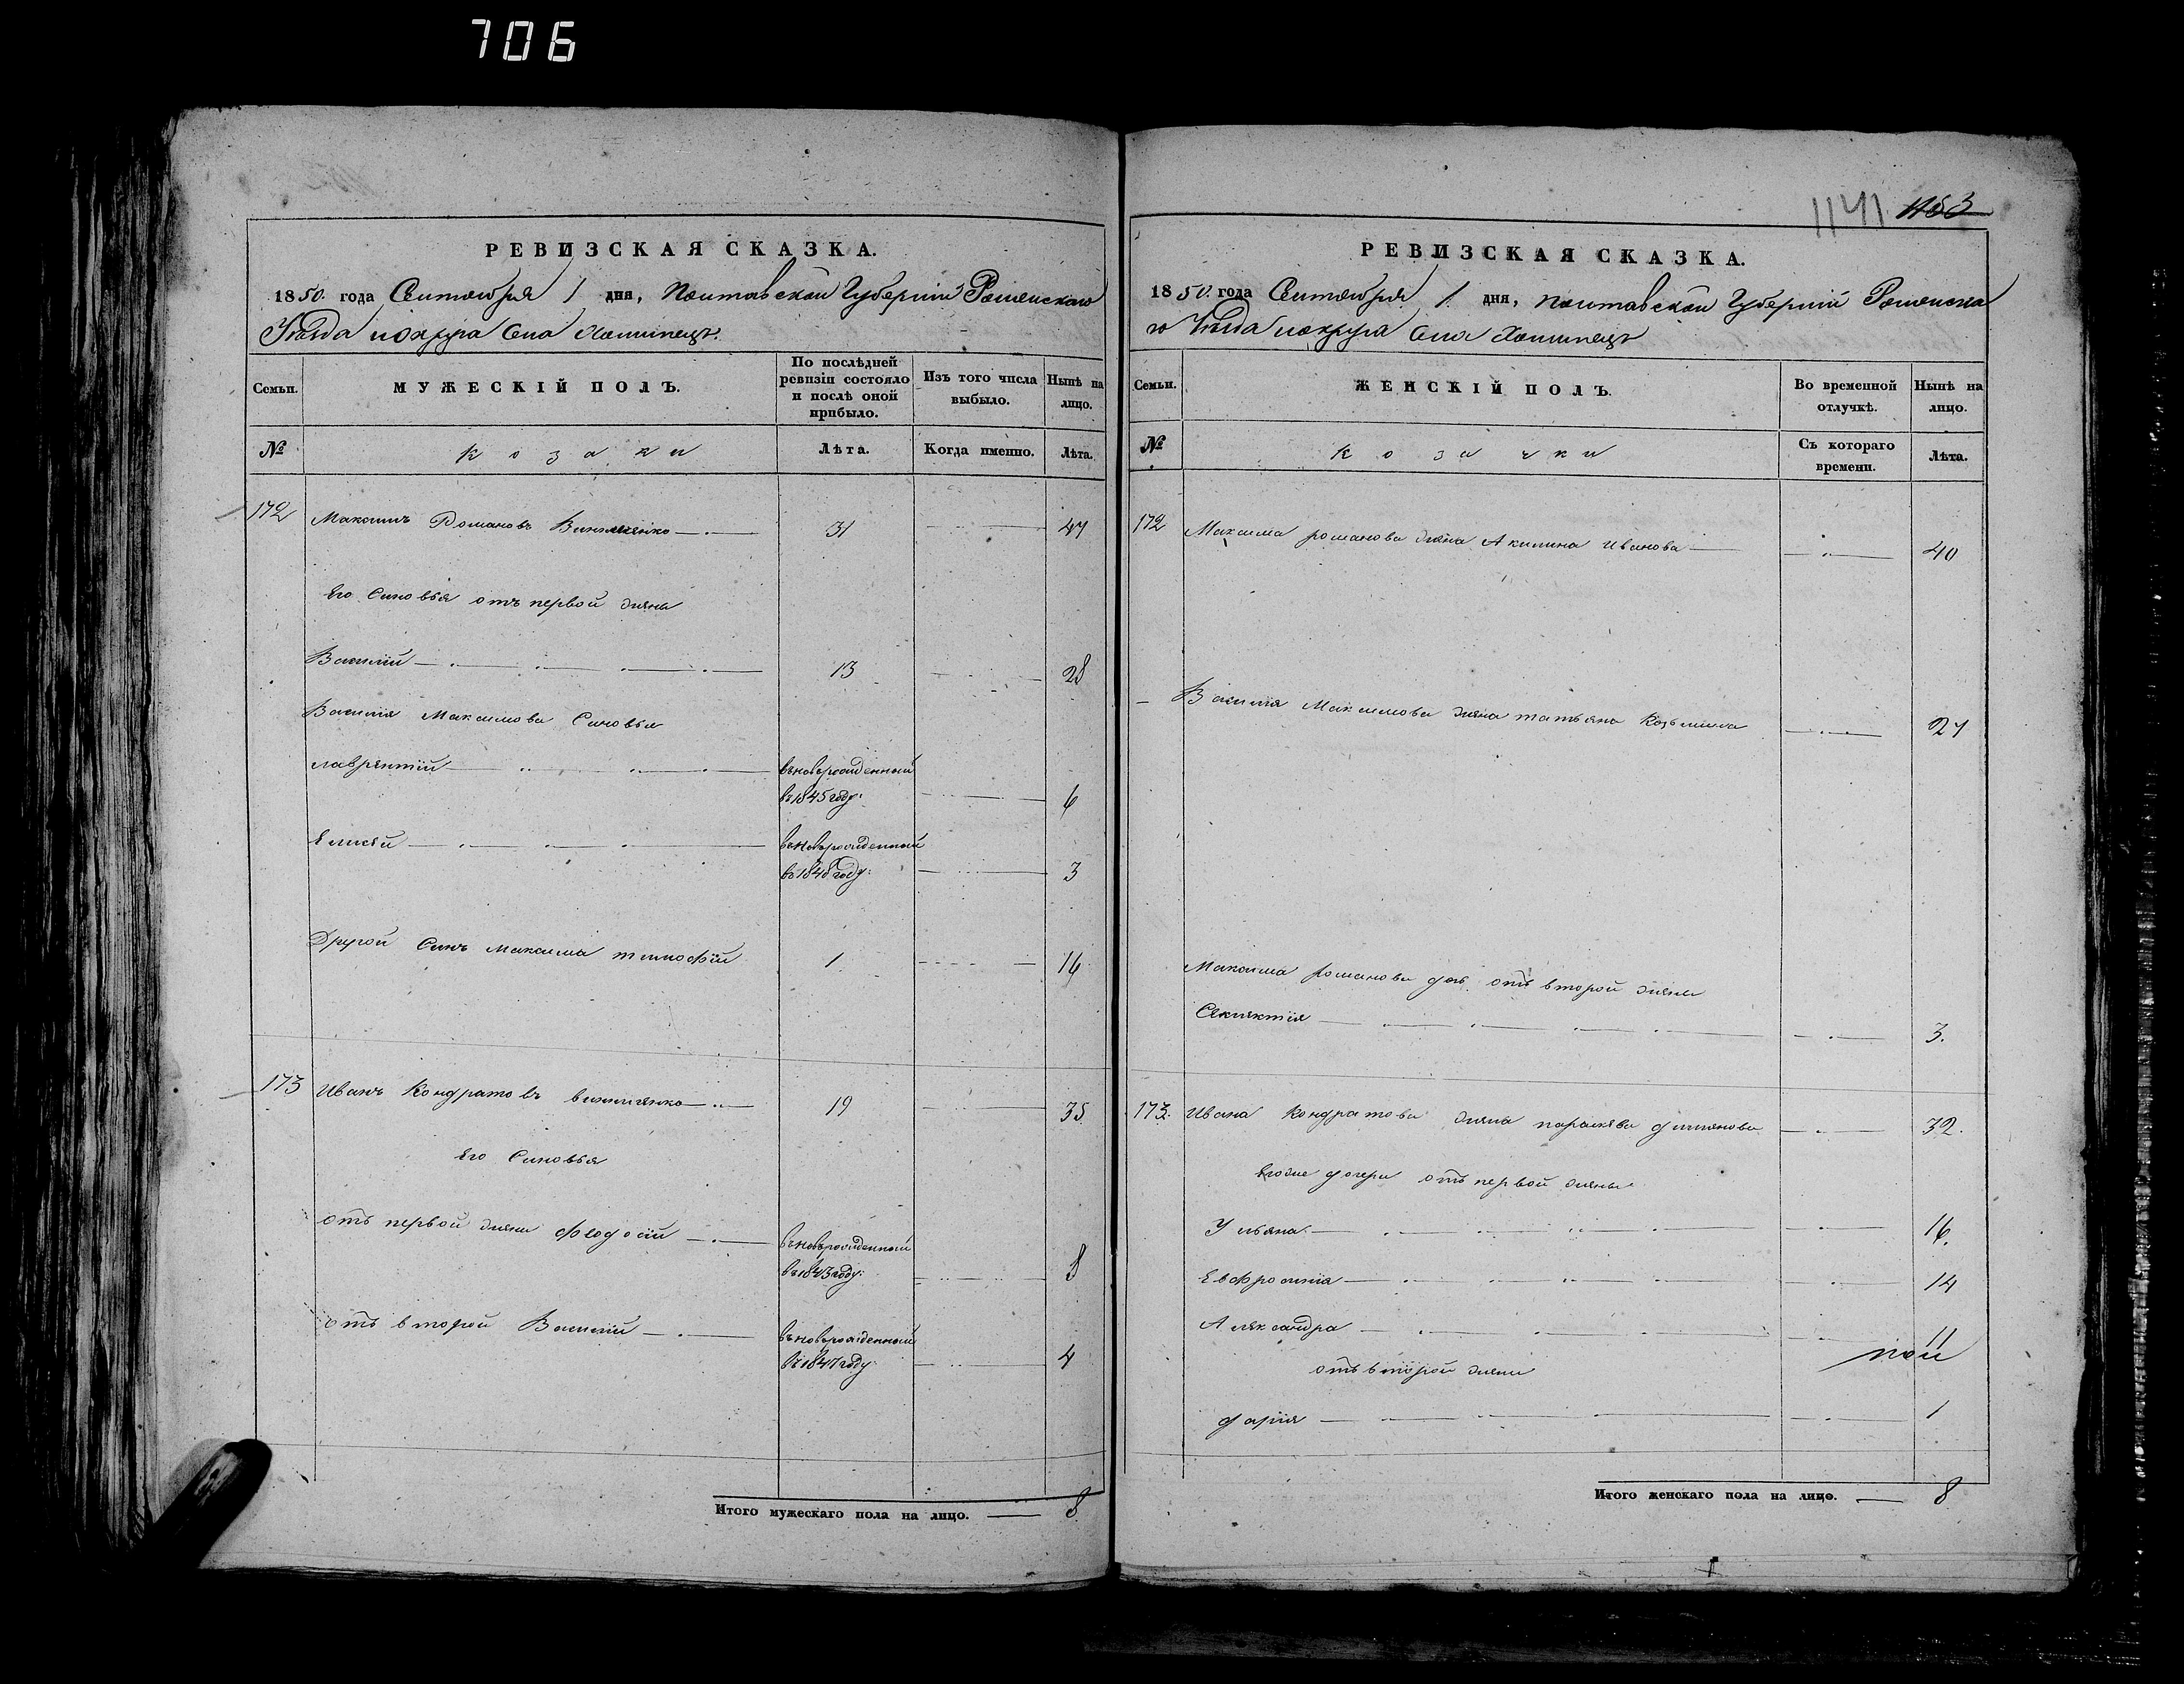 706
РЕВИЗСКАЯ СКАЗКА.
1850. года Сентября 1 дня, Полтавской Губерніи Роменскаго
Уѣзда иокруга Села
Семьи. МУЖЕСКІЙ ПОЛЪ. По послѣдней ревизіи состояло и послѣ оной прибыло. Изъ того числа выбыло. Нынѣ на лицо.
№ козаки Лѣта. Когда именно. Лѣта.
172 Максимъ Романовъ 31 47
Его Синовья отъ первой жены
Василій 13 28
Василія Максимова Синовья
лаврентій вновьрожденный
въ1845году. 6
Елисѣй вновьрожденный
въ1848году. 3
Другой Синъ Максима тимофій 1 16
173 Иванъ Кондратовъ 19 35
Его Синовья
отъ первой жени Феодосій вновьрожденный
въ1843году. 8
отъ второй Василій вновьрожденный
въ1847году. 4
Итого мужескаго пола на лицо. 8
1141 1153
РЕВИЗСКАЯ СКАЗКА.
1850. года Сентября 1. дня, полтавской Губерніи Роменска
го Уѣзда иокруга Села
Семьи. ЖЕНСКІЙ ПОЛЪ. Во временной отлучкѣ. Нынѣ на лицо.
№ козачки Съ котораго времени. Лѣта.
172 Максима романова жена Акилина Иванова 40
Василія Максимова жена татьяна Козьмина 27
Максима романова дочь отъ второй жени
3.
173. Ивана Кондратова жена параскева 32.
Егоже дочери отъ первой жены
Ульяна 16.
Евфросинія 14
Александра 11
отъ второй жени
дарія 1
Итого женскаго пола на лицо. 8